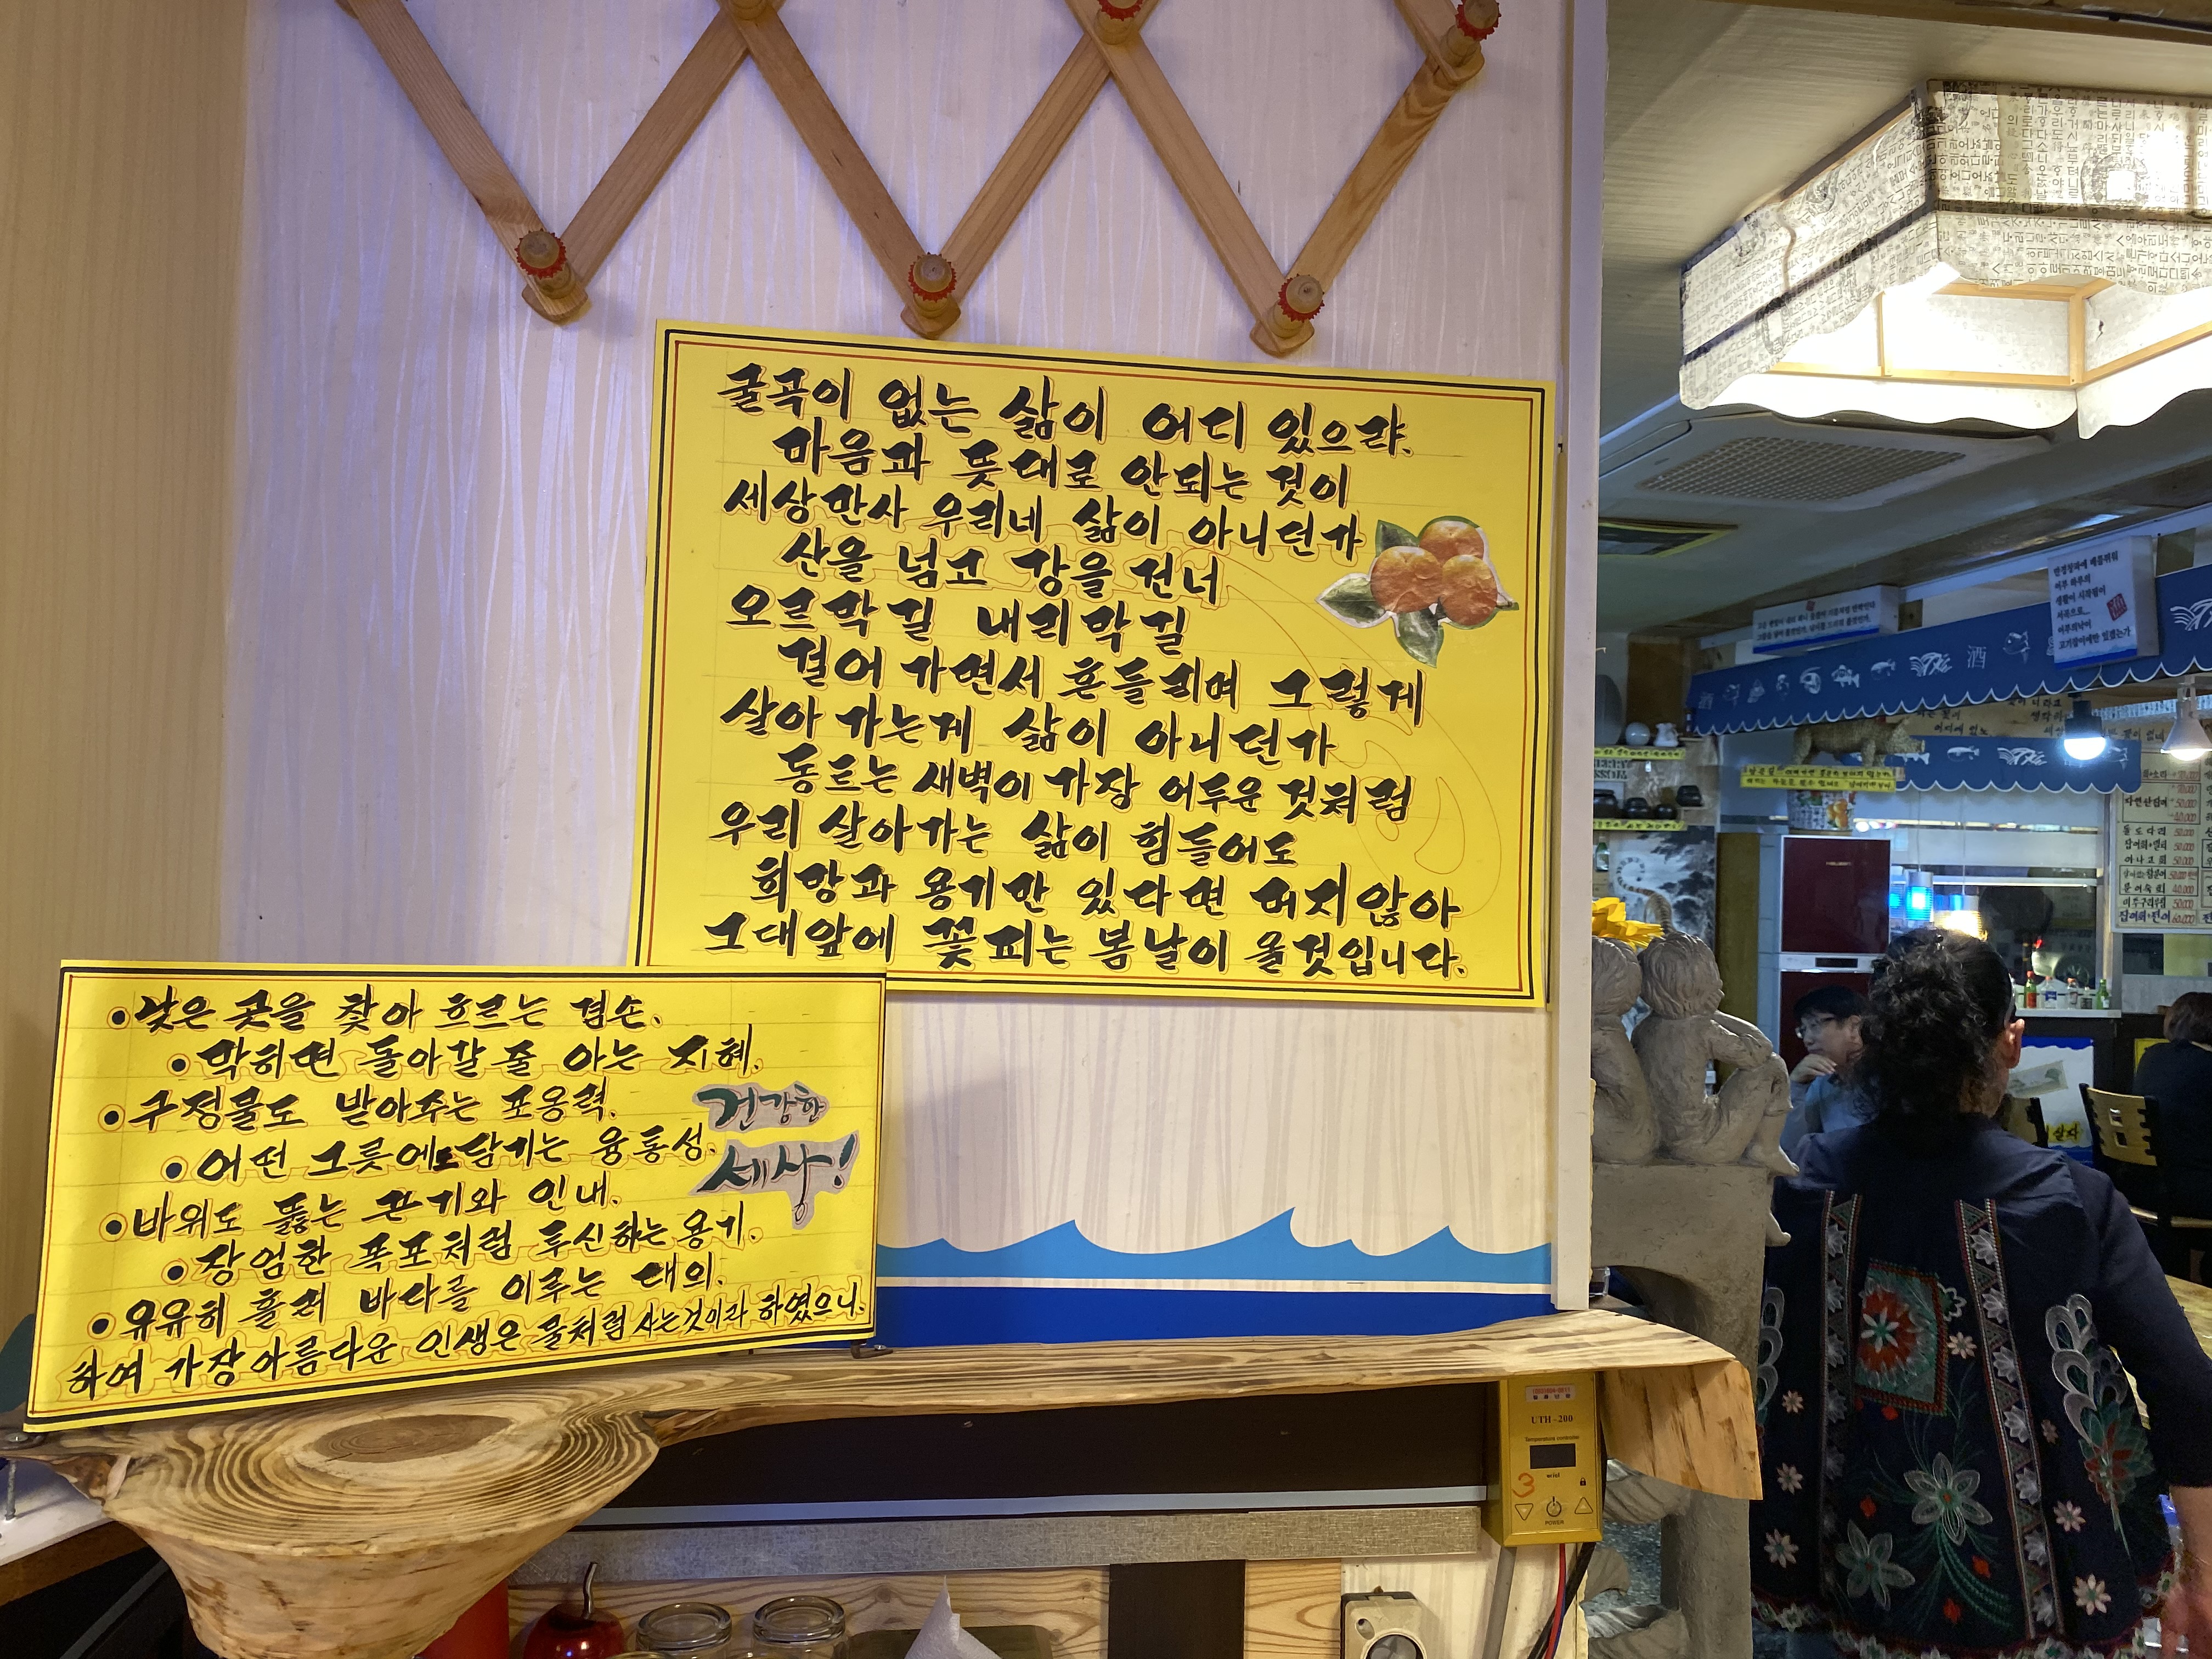 굴곡이 없는 삶이 어디 있으랴.
마음과 뜻대로 안되는 것이
세상만사 우리네 삶이 아니던가
산을 넘고 강을 건너
오르막길 내리막길
걸어 가면서 흔들리며 그렇게
살아 가는게 삶이 아니던가
동트는 새벽이 가장 어두운 것처럼
우리 살아가는 삶이 힘들어도
희망과 용기만 있다면 머지않아
그대앞에 꽃피는 봄날이 올것입니다.
•낮은 곳을 찾아 흐르는 겸손.
•막히면 돌아갈 줄 아는 지혜.
•구정물도 받아주는 포용력.
•어떤 그릇에도담기는 융통성.
•바위도 뚫는 끈기와 인내.
•장엄한 폭포처럼 투신하는 용기.
•유유히 흘러 바다를 이루는 대의.
하여 가장 아름다운 인생은 물처럼 사는것이라 하였으니.
건강한
세상!
UTH-200
Temperature controller
uriel
3
POWER
만경창파에 배를띄워
어부 하루의
생활이 시작됨이
어부의낙이
고기잡이에만 있겠는가
酒
돌도다리 50,000
아나고회 50,000
문어숙회 40,000